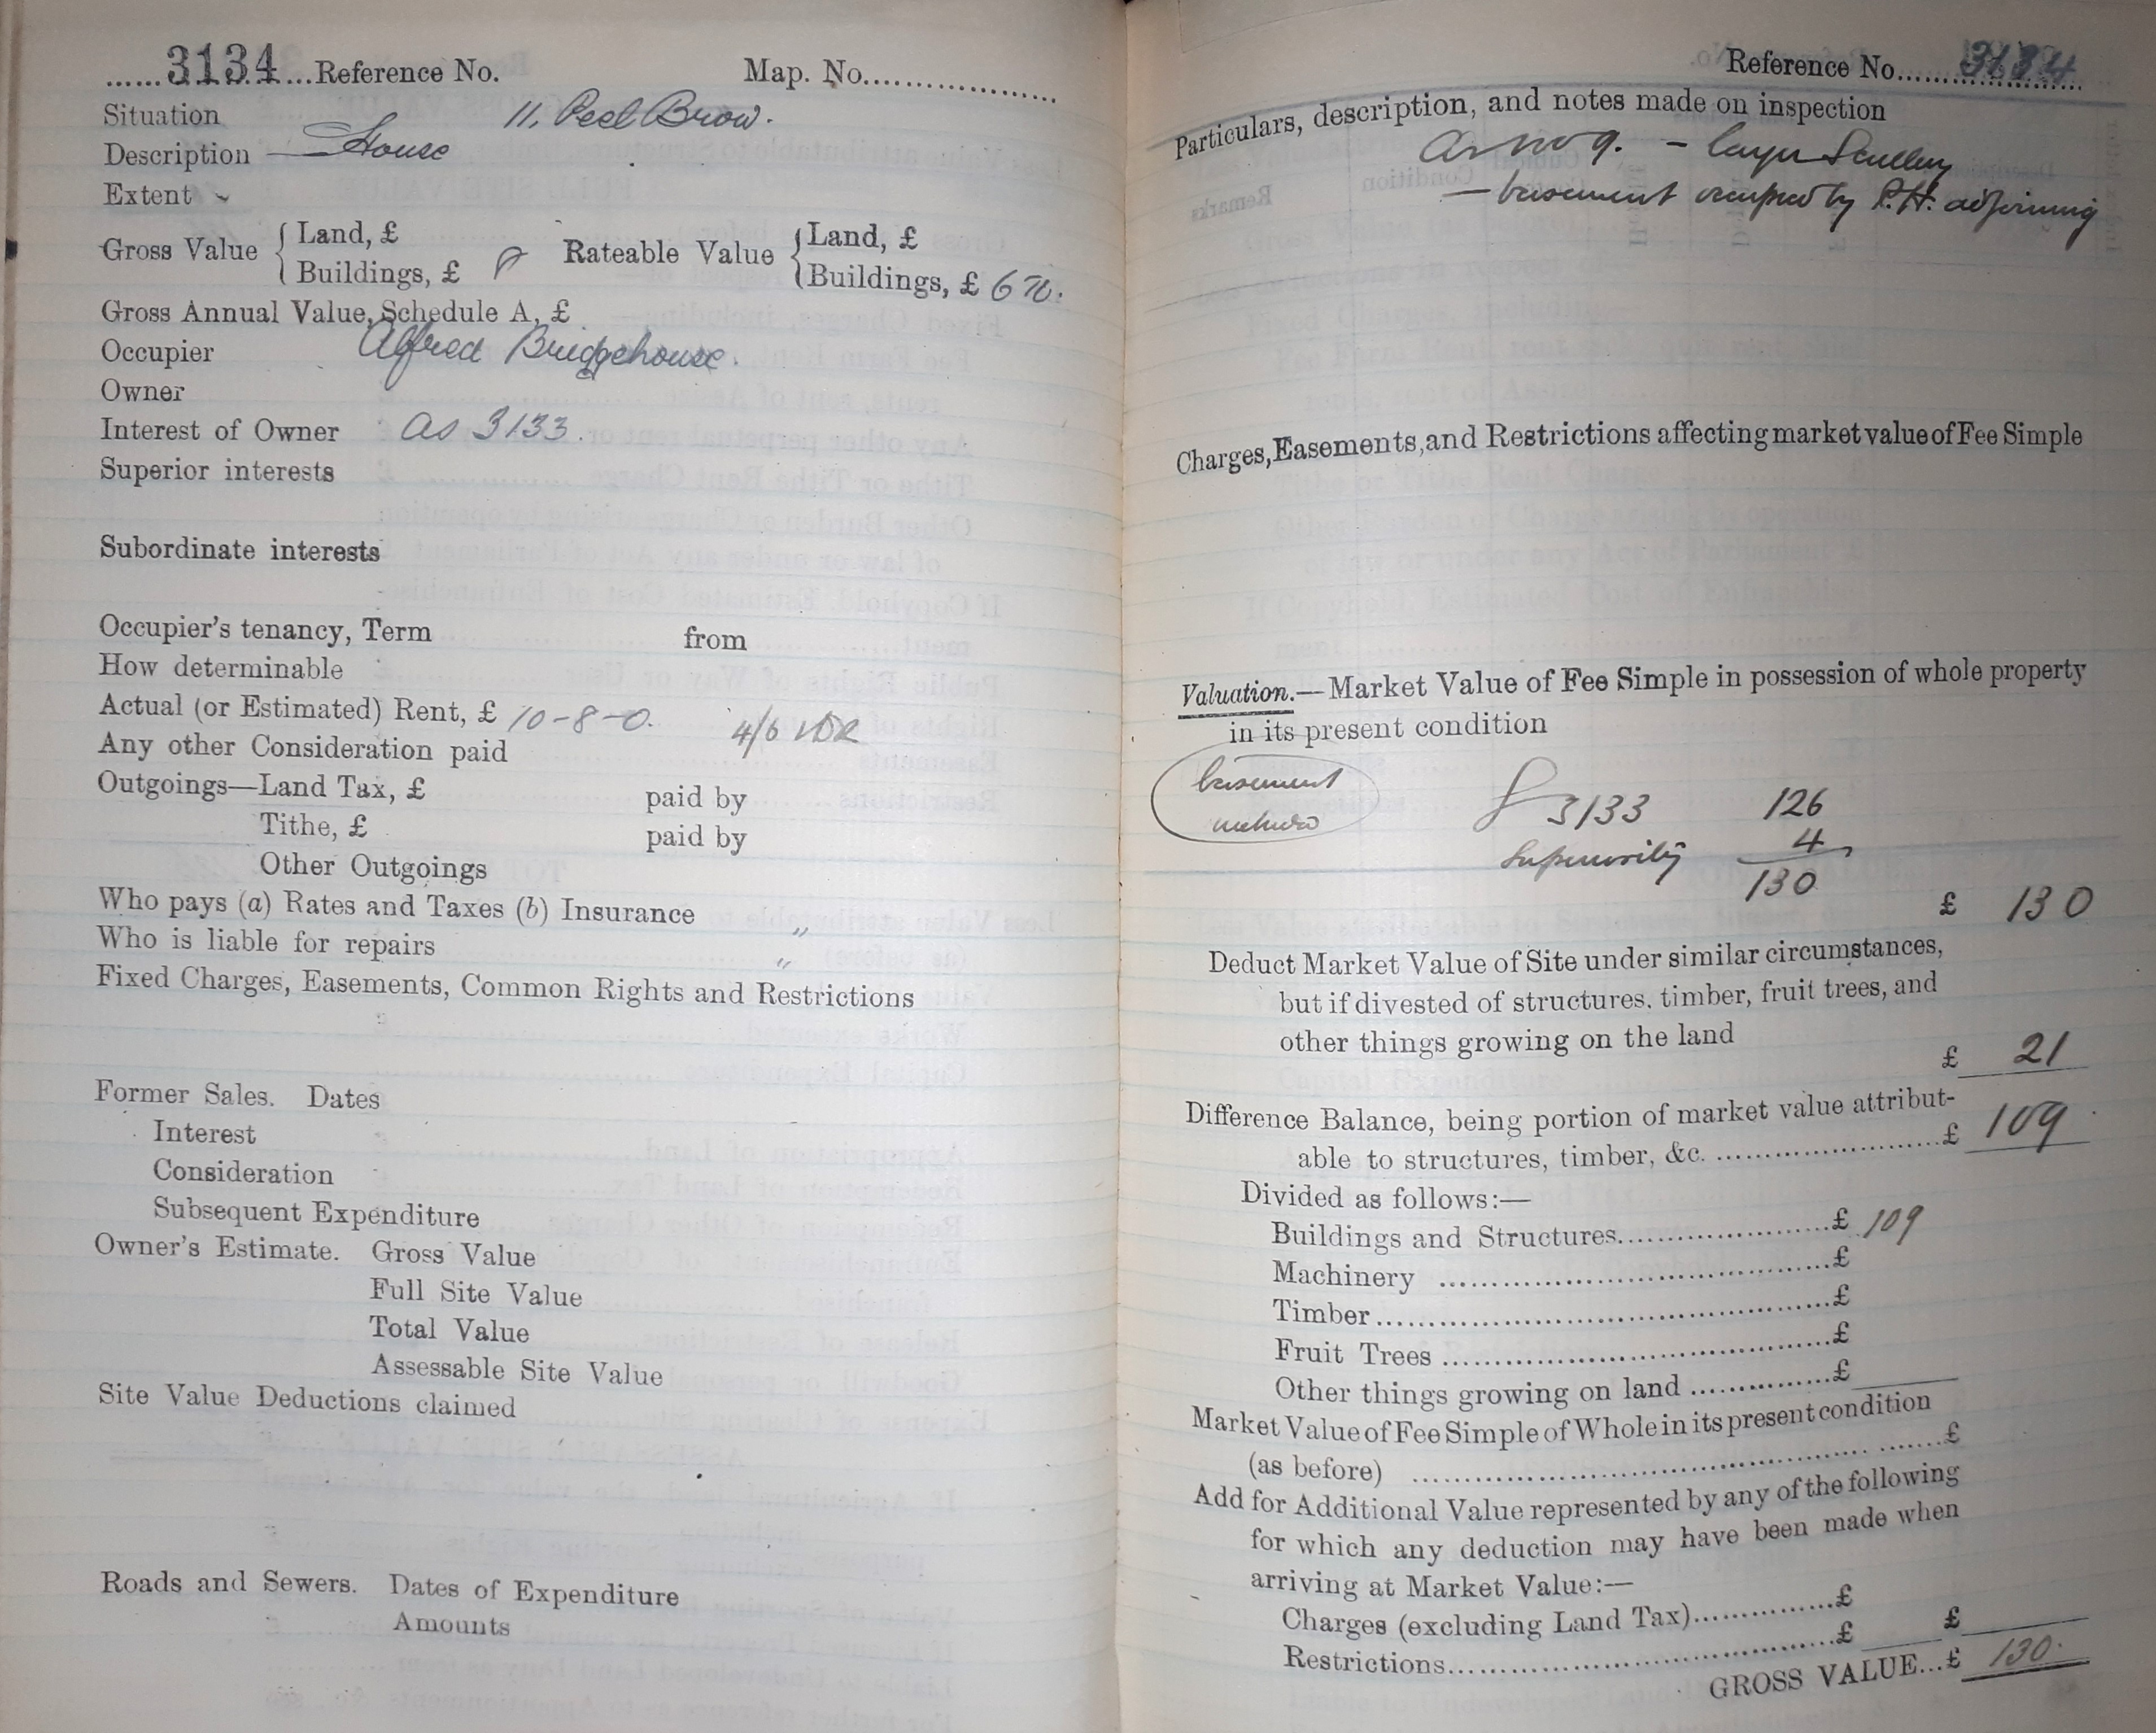 ......3134...Reference No. Map. No..................
Situation 11, Peel Brow.
Description — House
Extent
Gross Value { Land, £ Rateable Value { Land, £
Buildings, £ Buildings, £ 6
Gross Annual Value, Schedule A, £
Occupier Alfred Bridgehouse.
Owner
Interest of Owner as 3133.
Superior interests
Subordinate interests
Occupier's tenancy, Term from
How determinable
Actual (or Estimated) Rent, £ 10-8-0. 4/6
Any other Consideration paid
Outgoings—Land Tax, £ paid by
Tithe, £ paid by
Other Outgoings
Who pays (a) Rates and Taxes (b) Insurance "
Who is liable for repairs "
Fixed Charges, Easements, Common Rights and Restrictions
Former Sales. Dates
Interest
Consideration
Subsequent Expenditure
Owner's Estimate. Gross Value
Full Site Value
Total Value
Assessable Site Value
Site Value Deductions claimed
Roads and Sewers. Dates of Expenditure
Amounts
Reference No......3134
Particulars, description, and notes made on inspection
As no 9. - larger Scullery
— basement occupied by P.H. adjoining
Charges, Easements, and Restrictions affecting market value of Fee Simple
Valuation.—Market Value of Fee Simple in possession of whole property
in its present condition
basement
3133 126
Superiority 4
130
£ 130
Deduct Market Value of Site under similar circumstances,
but if divested of structures. timber, fruit trees, and
other things growing on the land
£ 21
Difference Balance, being portion of market value attribut-
able to structures, timber, &c. ........................£ 109
Divided as follows:—
Buildings and Structures.....................£ 109
Machinery .......................................£
Timber.............................................£
Fruit Trees .......................................£
Other things growing on land ...............£
Market Value of Fee Simple of Whole in its present condition
(as before) ..............................................£
Add for Additional Value represented by any of the following
for which any deduction may have been made when
arriving at Market Value:—
Charges (excluding Land Tax)...............£
Restrictions.......................................£ £
GROSS VALUE...£ 130.